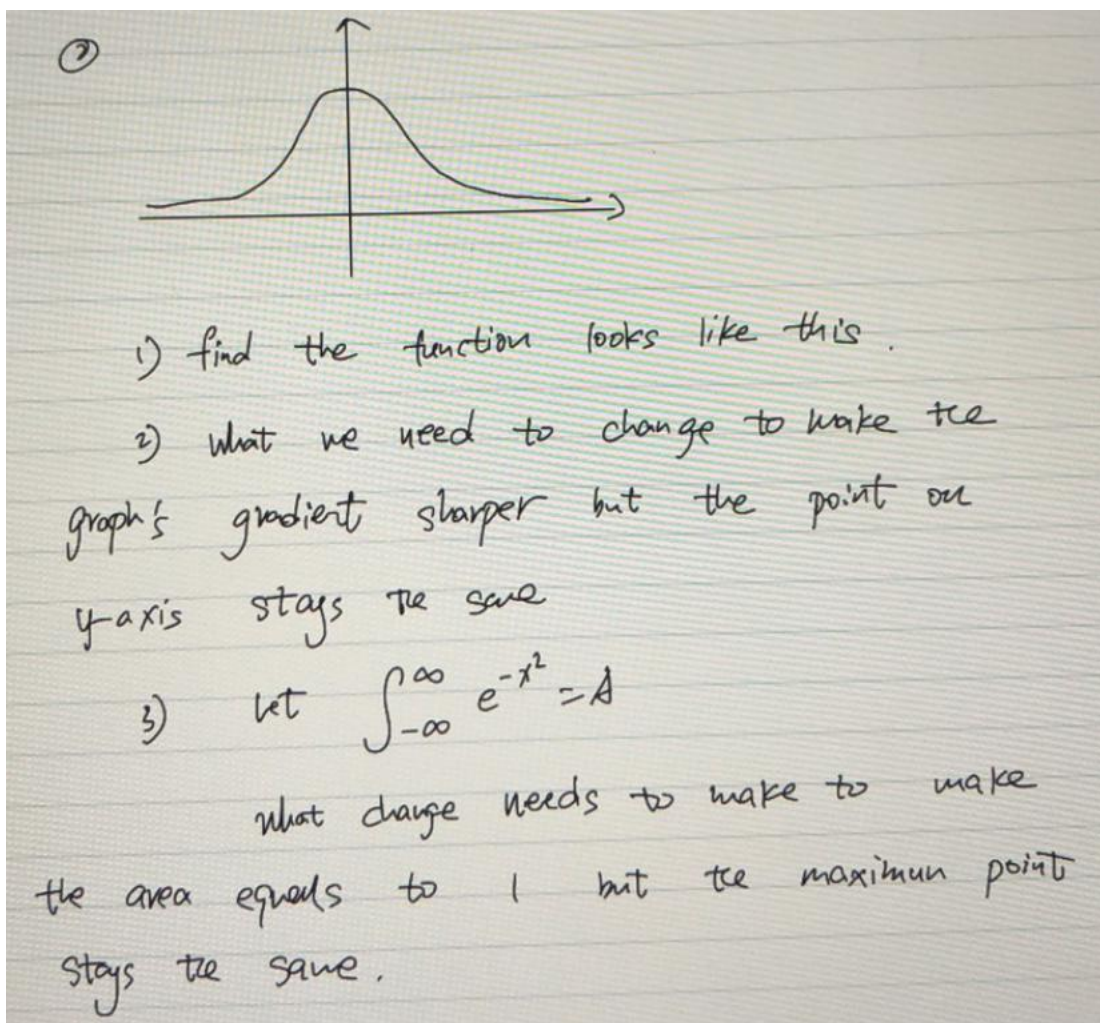 ②
1) find the function looks like this.
2) what we need to change to make the
graph's gradient sharper but the point on
y-axis stays the same
3) Let ∫_{-∞}^{∞} e^{-x^2} = A
what change needs to make to make
the area equals to 1 but the maximun point
stays the same.